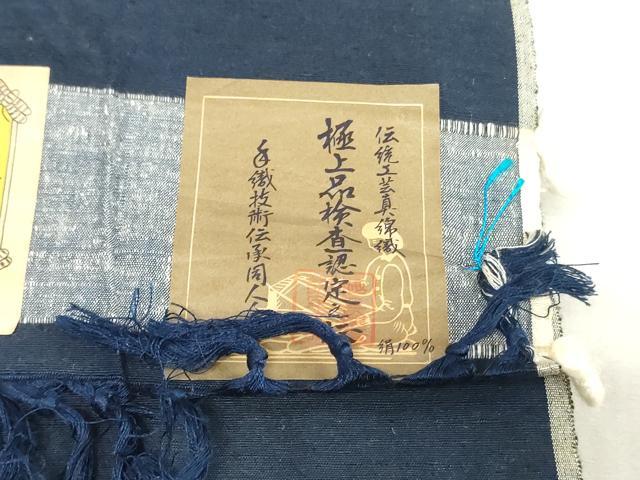 伝統工芸真綿織
極上品検査認定之
手織技術伝承同人
絹100%